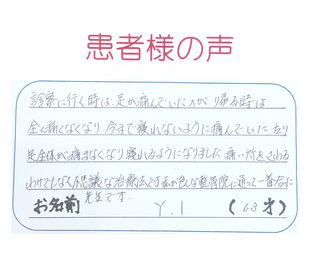 患者様の声
診察に行く時は、足が痛んでいたのが帰る時は
全く痛くなくなり今まで寝れないように痛んでいた左り
足全体が痛まなくなり寝れるようになりました痛い所をさわる
わけでもなく不思議な治療法です私が色々な整骨院に通って一番
先生です。
お名前 Y.I (63才)